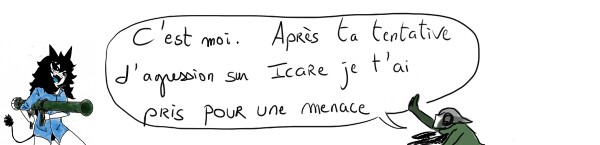 C'est moi. Après ta tentative
d'agression sur Icare je t'ai
pris pour une menace